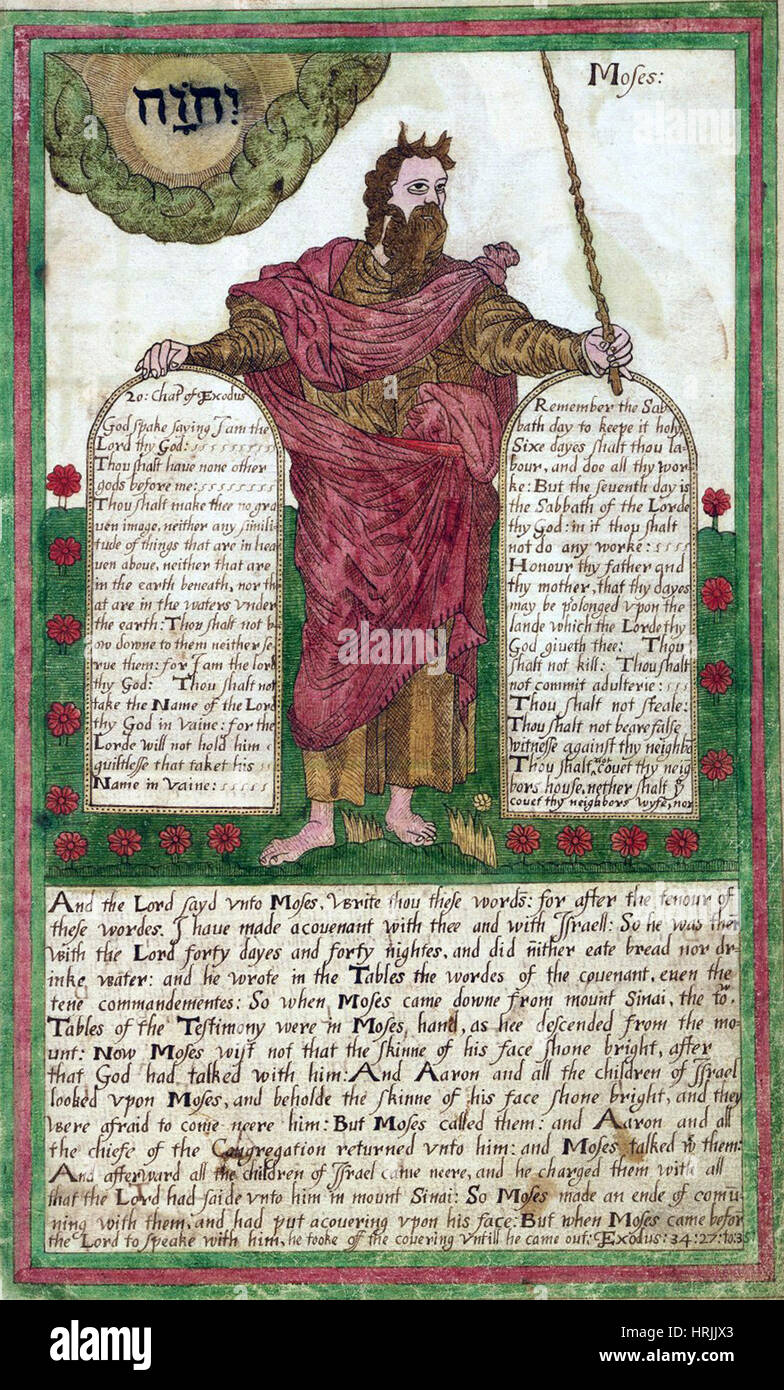 יְהֹוָה
Moses:
20: Chap: of Exodus
God spake saying I am the
Lord thy God:
Thou shalt have none other
gods before me:
Thou shalt make thee no gra
uen image, neither any simili
tude of things that are in hea
uen above, neither that are
in the earth beneath, nor th
at are in the waters vnder
the earth: Thou shalt not b
ow downe to them neither se
rue them: for I am the lord
thy God: Thou shalt not
take the Name of the Lord
thy God in vaine: for the
Lorde will not hold him
guiltlesse that taket his
Name in vaine:
Remember the Sab
bath day to keepe it holy
Sixe dayes shalt thou la-
bour, and doe all thy wor
ke: But the seventh day is
the Sabbath of the Lorde
thy God: in it thou shalt
not do any worke:
Honour thy father and
thy mother, that thy dayes
may be prolonged vpon the
lande which the Lorde thy
God giueth thee: Thou
shalt not kill: Thou shalt
not commit adulterie:
Thou shalt not steale:
Thou shalt not beare false
witnesse against thy neighbo
Thou shalt not couet thy neig
bors house, nether shalt y
couet thy neighbors wyfe, nor
And the Lord sayd vnto Moses, write thou these words: for after the tenour of
these wordes. I have made a couenant with thee and with Israell: So he was ther
with the Lord forty dayes and forty nightes, and did nither eate bread nor dr-
inke water: and he wrote in the Tables the wordes of the couenant, euen the
tene commandementes: So when Moses came downe from mount Sinai, the tw.
Tables of the Testimony were in Moses, hand, as hee descended from the mo-
unt: Now Moses wist not that the skinne of his face shone bright, after
that God had talked with him: And Aaron and all the children of Israel
looked vpon Moses, and beholde the skinne of his face shone bright, and they
were afraid to come neere him: But Moses called them: and Aaron and all
the chiefe of the Congregation returned vnto him: and Moses talked wth them:
And afterward all the children of Israel came neere, and he charged them with all
that the Lord had saide vnto him in mount Sinai: So Moses made an ende of comu-
ning with them, and had put a couering vpon his face: But when Moses came befor
the Lord to speake with him, he tooke off the couering untill he came out: Exodus: 34:27:to:35
alamy
Image ID: HRJJX3
www.alamy.com